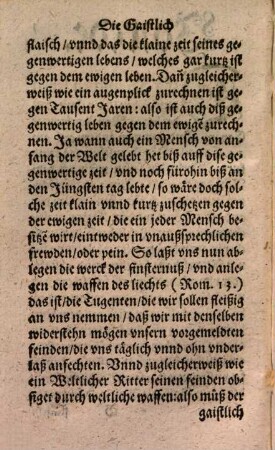 Die Gaistlich
flaisch / vnnd das die klaine zeit seines ge⸗
genwertigen lebens / welches gar kurtz ist
gegen dem ewigen leben. Dañ zugleicher⸗
weiß wie ein augenplick zurechnen ist ge⸗
gen Tausent Jaren : also ist auch diß ge⸗
genwertig leben gegen dem ewigẽ zurech⸗
nen. Ja wann auch ein Mensch von an⸗
fang der Welt gelebt het biß auff dise ge⸗
genwertige zeit / vnd noch fürohin biß an
den Jüngsten tag lebte / so wäre doch sol⸗
che zeit klain vnnd kurtz zuschetzen gegen
der ewigen zeit / die ein jeder Mensch be⸗
sitzẽ wirt / eintweder in vnaußsprechlichen
frewden / oder pein. So laßt vns nun ab⸗
legen die werck der finsternuß / vnd anle⸗
gen die waffen des liechts ( Rom. 13. )
das ist / die Tugenten / die wir sollen fleißig
an vns nemmen / daß wir mit denselben
widerstehn mögen vnsern vorgemeldten
feinden / die vns täglich vnnd ohn vnder⸗
laß anfechten. Vnnd zugleicherweiß wie
ein Weltlicher Ritter seinen feinden ob⸗
siget durch weltliche waffen : also müß der
gaistlich